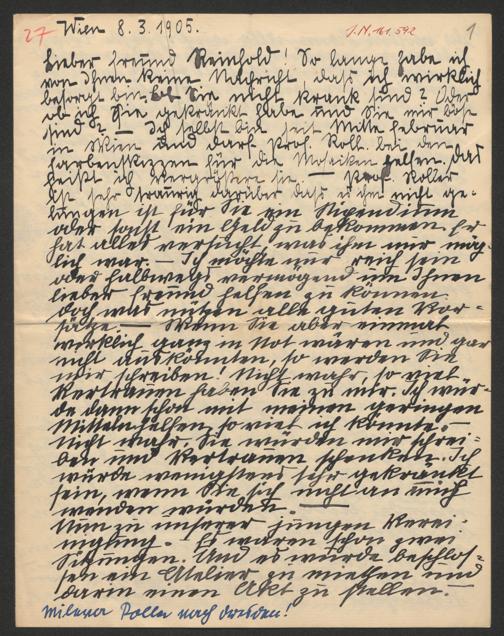 27 Wien 8.3.1905. I.N. 161.592 1
Lieber Freund Reinhold! So lange habe ich
von Ihnen keine Nachricht, daß ich wirklich
besorgt bin, ob Sie nicht krank sind? Oder
ob ich Sie gekränkt habe und Sie mir böse
sind? — Ich selbst bin seit Mitte Februar
in Wien und darf Prof. Roll. bei den
Farbenskizzen für die Mosaiken helfen. Das
heißt ich vergrößere sie. — Prof. Roller
ist sehr traurig darüber daß es ihm nicht ge-
lungen ist für Sie ein Stipendium
oder sonst ein Geld zu bekommen. Er
hat alles versucht, was ihm nur mög-
lich war. — Ich möchte nur reich sein
oder halbwegs vermögend um Ihnen
lieber Freund helfen zu können.
Doch was nützen alle guten Vor-
sätze. — Wenn Sie aber einmal
wirklich ganz in Not wären und gar
nicht auskönnten, so werden Sie
mir schreiben! Nicht wahr, so viel
Vertrauen haben Sie zu mir. Ich wür-
de dann schon mit meinen geringen
Mitteln helfen, so viel ich könnte. —
Nicht wahr, Sie würden mir schrei-
ben und Vertrauen schenken. Ich
würde wenigstens sehr gekränkt
sein, wenn Sie sich nicht an mich
wenden würden. —
Nun zu unserer jungen Verei-
nigung. Es waren schon zwei
Sitzungen. Und es wurde beschlos-
sen ein Atelier zu mieten und
darin einen Akt zu stellen.
Milena Roller nach Dresden!